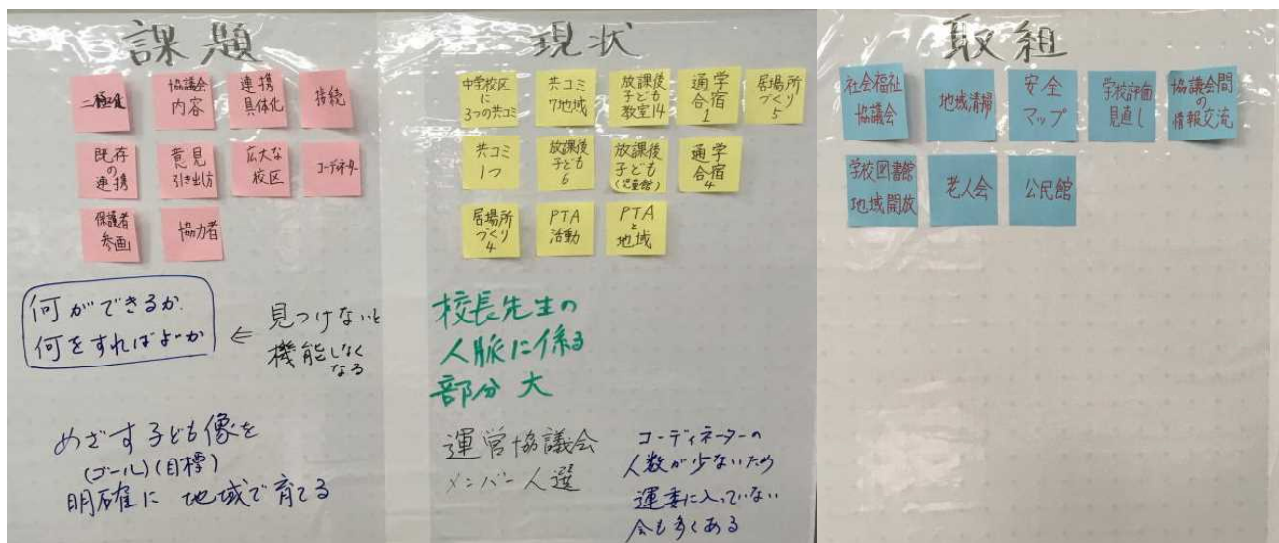 課題
協議会
内容
連携
具体化
持続
既存
の
連携
意見
引き出し方
広大な
校区
コーディネーター
保護者
参画
協力者
何ができるか.
何をすればよいか
⇐ 見つけないと
機能しなく
なる
めざす子ども像を
(ゴール)(目標)
明確に 地域で育てる
現状
中学校区
に
3つの共コミ
共コミ
7地域
放課後
子ども
教室14
通学
合宿
1
居場所
づくり
5
共コミ
1つ
放課後
子ども
6
放課後
子ども
(児童館)
通学
合宿
4
居場所
づくり
4
PTA
活動
PTA
と
地域
校長先生の
人脈に係る
部分 大
運営協議会
メンバー人選
コーディネーターの
人数が少ないため
運委に入っていない
会も多くある
取組
社会福祉
協議会
地域清掃
安全
マップ
学校評価
見直し
協議会間
の
情報交流
学校図書館
地域開放
老人会
公民館